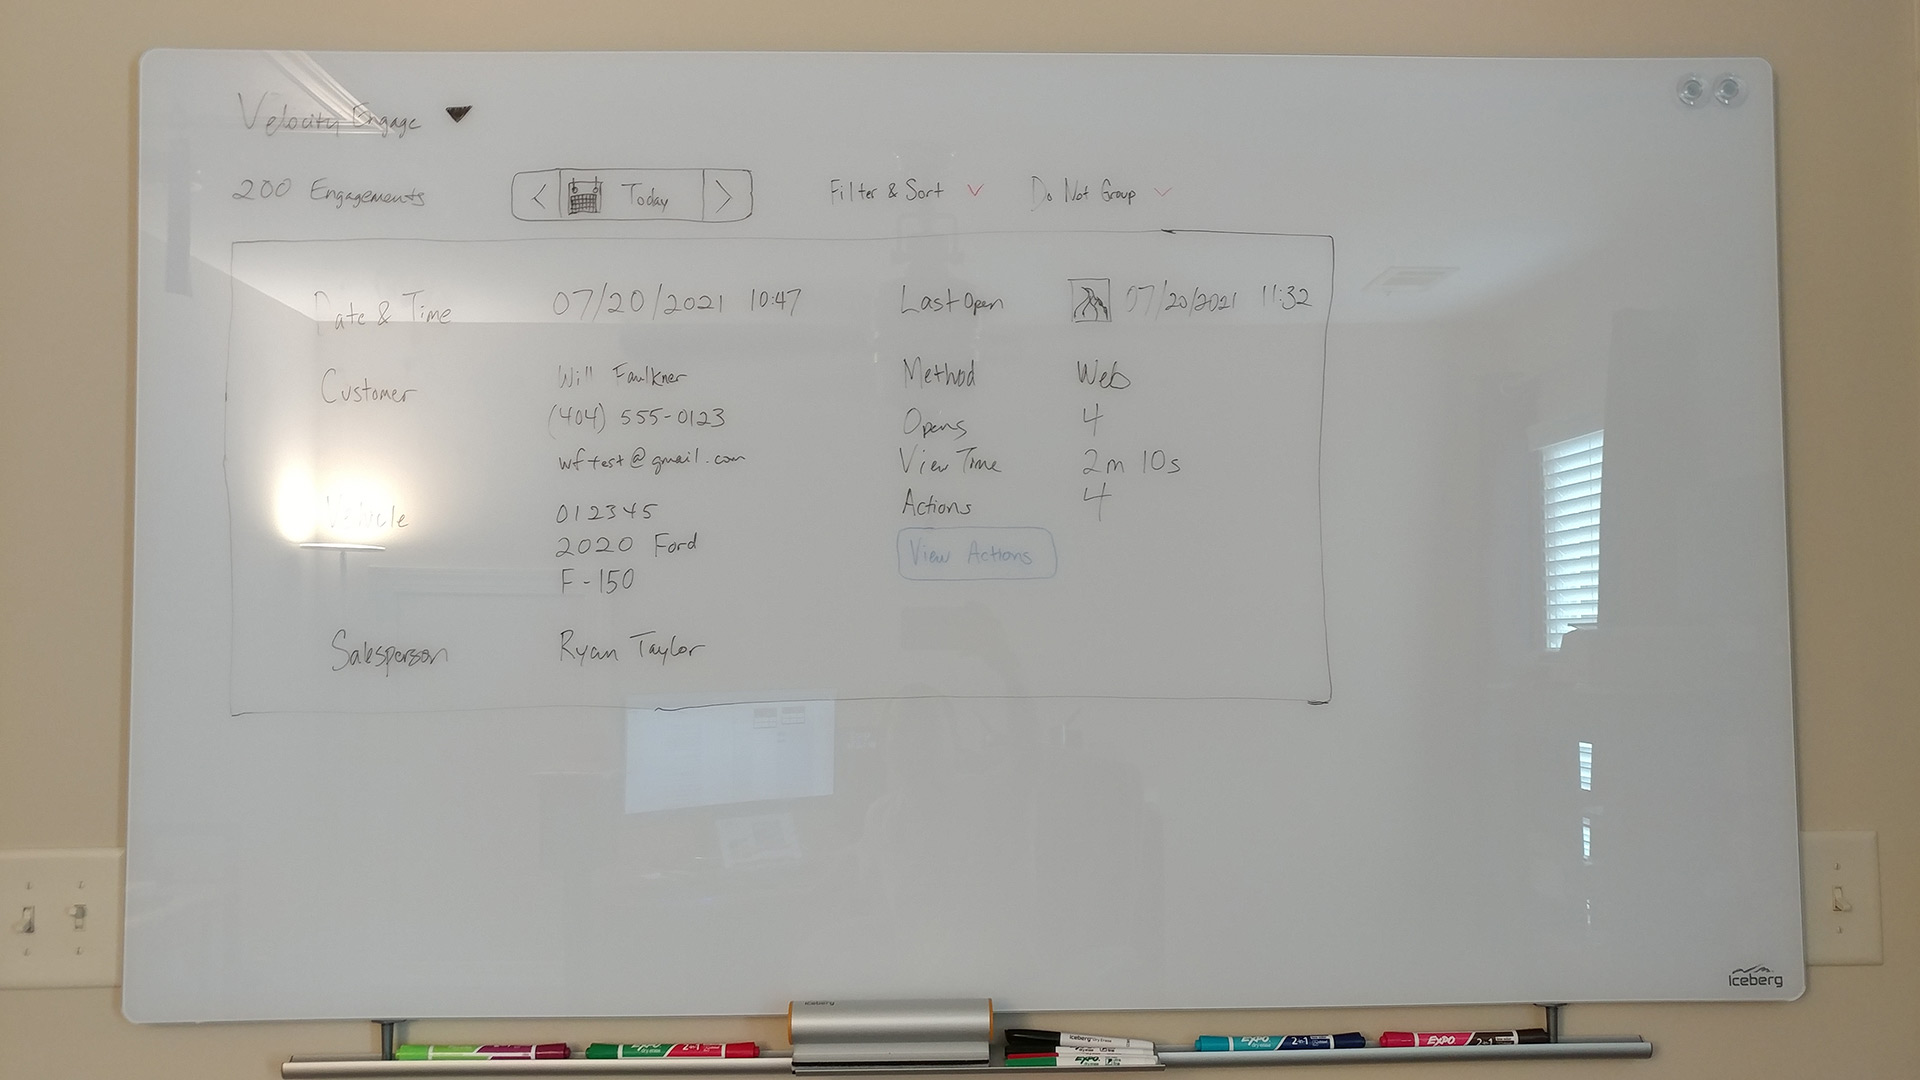 Velocity Engage
200 Engagements
Today
Filter & Sort
Do Not Group
Date & Time 07/20/2021 10:47
Last Open 07/20/2021 11:32
Customer Will Faulkner
(404) 555-0123
wftest@gmail.com
Vehicle 012345
2020 Ford
F-150
Salesperson Ryan Taylor
Method Web
Opens 4
View Time 2m 10s
Actions 4
View Actions
Iceberg
Iceberg
EXPO
EXPO 2-in-1
Iceberg
EXPO
EXPO 2-in-1
EXPO 2-in-1